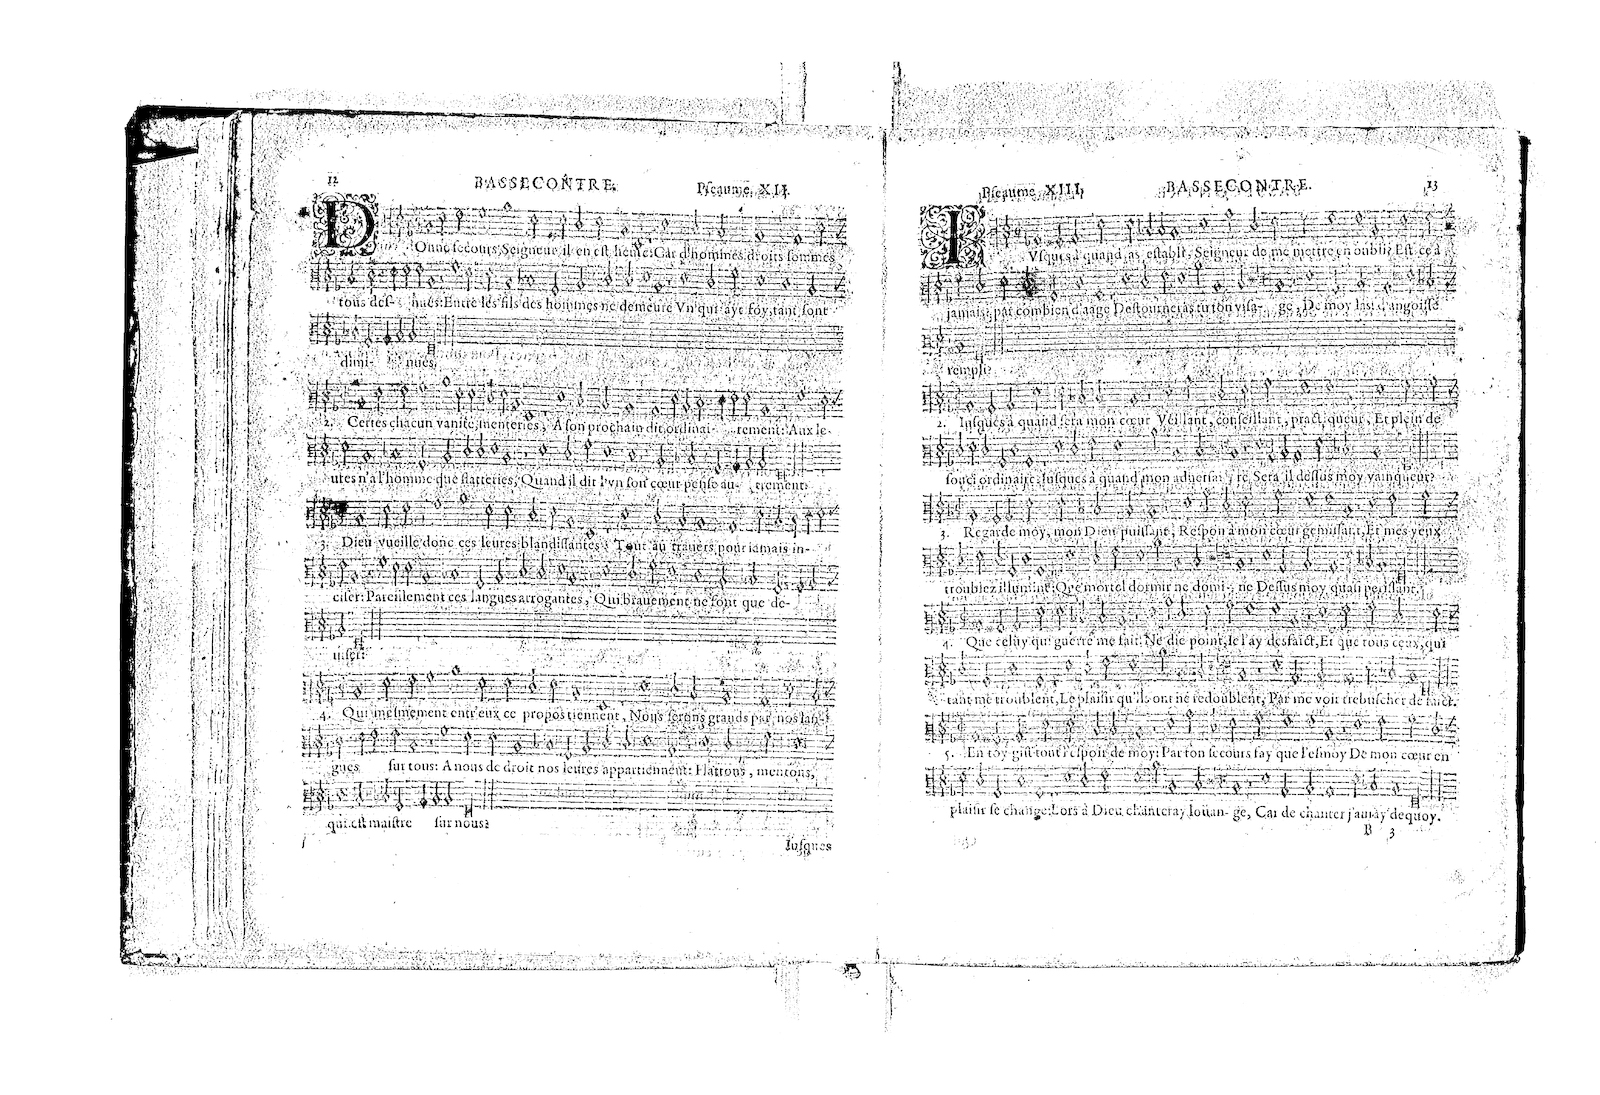 12 BASSECONTRE. Pſeaume XII.
DOnne ſecours, Seigneur, il en eſt heure: Car d'hommes droits ſommes
tous deſ- nués: Entre les fils des hommes ne demeure Vn qui ayt foy, tant ſont
dimi- nués.
2. Certes chacun vanité, menteries, A ſon prochain dit ordinai- rement: Aux le-
ures n'a l'homme que flatteries, Quand il dit l'vn ſon cœur penſe au- trement.
3. Dieu vueille donc ces leures blandiſſantes, Tout au trauers pour iamais in-
ciſer: Pareillement ces langues arrogantes, Qui brauement ne ſont que de-
uiſer:
4. Qui meſmement entr'eux ce propos tiennent, Nous ſerons grands par nos lan-
gues ſur tous: A nous de droit nos leures appartiennent: Flattons, mentons,
qui eſt maiſtre ſur nous?
Iuſques
Pſeaume XIII. BASSECONTRE. 13
IVſques à quand as eſtabli, Seigneur de me mettre en oubli? Eſt-ce à
iamais? par combien d'aage Deſtourneras tu ton viſa- ge, De moy las! d'angoiſſe
rempli?
2. Iuſques à quand ſera mon cœur Veillant, conſeillant, practiqueur, Et plein de
ſouci ordinaire? Iuſques à quand mon aduerſai- re Sera-il deſſus moy vainqueur?
3. Regarde moy, mon Dieu puiſſant, Reſpon à mon cœur gemiſſant, Et mes yeux
troublez illumine: Que mortel dormir ne domi- ne Deſſus moy quaſi periſſant,
4. Que celuy qui guerre me fait: Ne die point, Ie l'ay desfaict, Et que tous ceux, qui
tant me troublent, Le plaiſir qu'ils ont ne redoublent, Par me voir trebuſcher de faict.
5. En toy giſt tout l'eſpoir de moy: Par ton ſecours fay que l'eſmoy De mon cœur en
plaiſir ſe change: Lors à Dieu chanteray loüan- ge, Car de chanter j'auray dequoy.
B 3